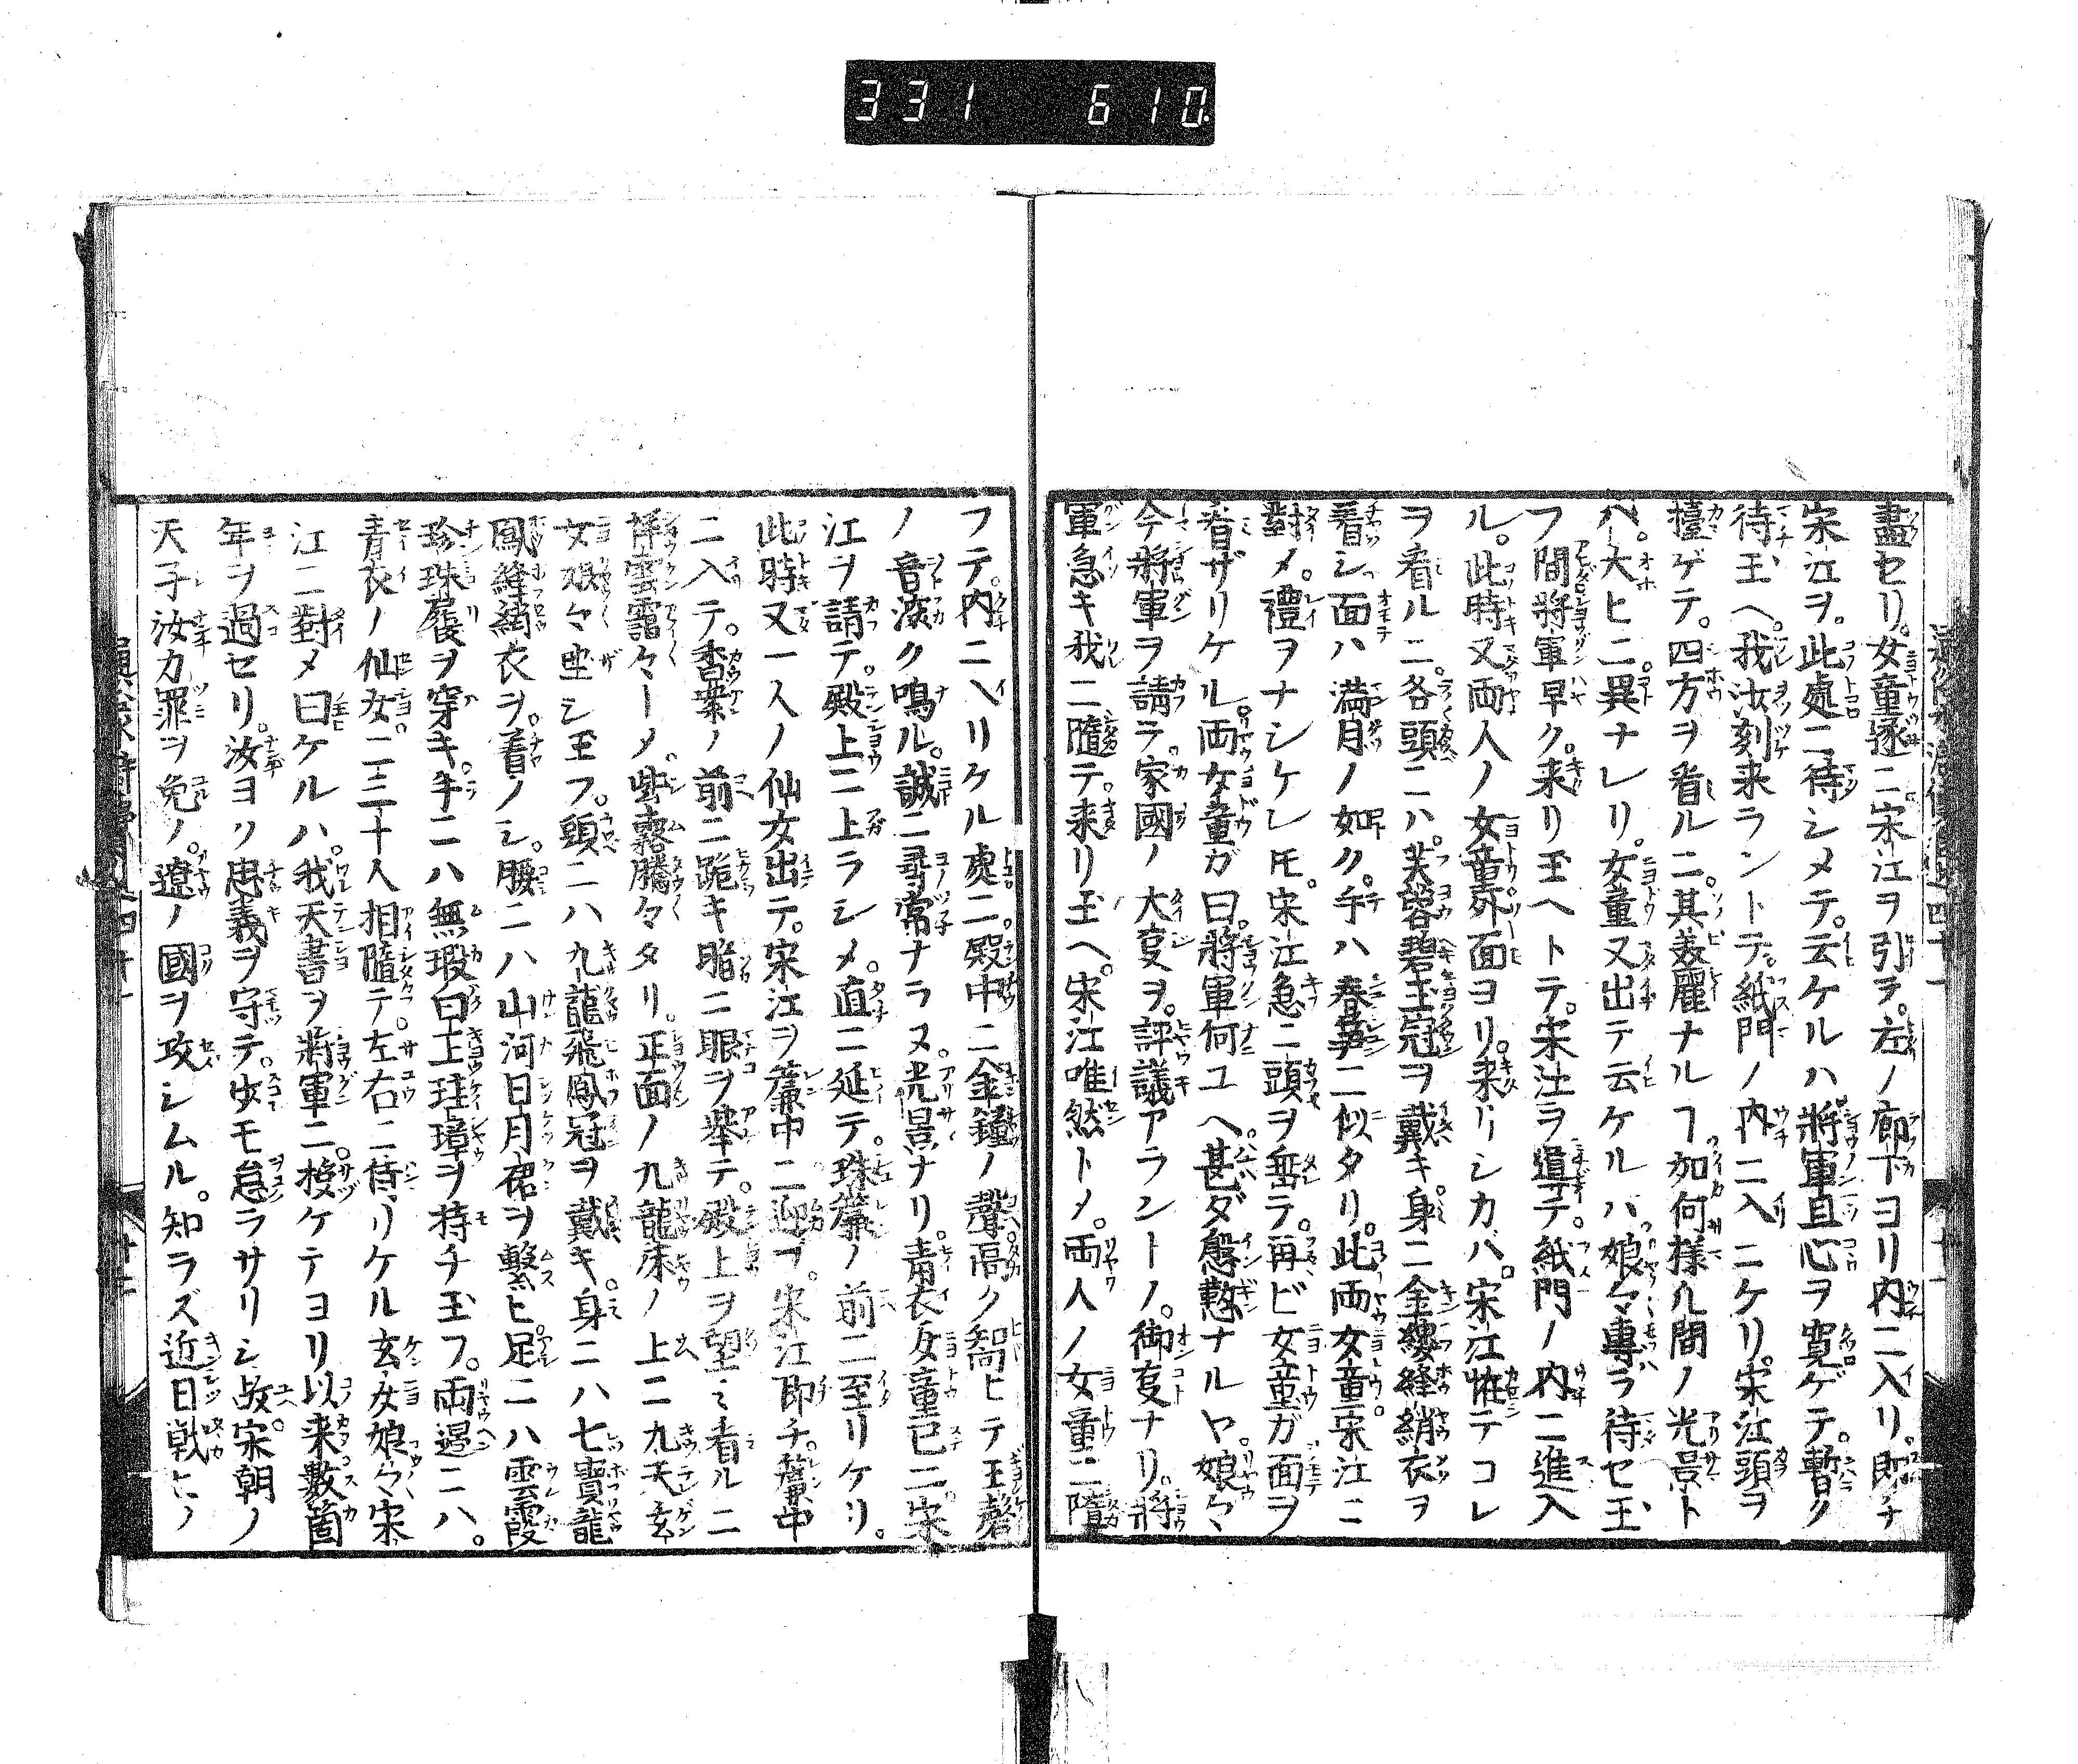 331 610
盡セリ。女童遂ニ宋江ヲ引ヲ。左ノ廊下ヨリ内ニ入リ。即チ
宋江ヲ。此處ニ待シメテ。云ケルハ將軍且心ヲ寛ゲテ。暫ク
待玉ヘ。我汝刻来ラントテ。紙門ノ内ニ入ニケリ。宋江頭ヲ
擡ゲテ。四方ヲ看ルニ。其美麗ナルヿ如何樣凡間ノ光景ト
ハ。大ヒニ異ナレリ。女童又出テ云ケルハ娘々專ラ待セ玉
フ間將軍早ク。来リ玉ヘトテ。宋江ヲ導テ。紙門ノ内ニ進入
ル。此時又両人ノ女童外面ヨリ。来リシカバ。宋江恠テコレ
ヲ看ルニ。各頭ニハ。芙蓉碧玉冠ヲ戴キ。身ニ金縷絳綃衣ヲ
着シ面ハ満月ノ如ク。手ハ春笋ニ似タリ。此両女童宋江ニ
對メ。禮ヲナシケレ𪜈。宋江急ニ頭ヲ垂テ。再ビ女童ガ面ヲ
看ザリケル。両女童ガ曰。將軍何ユヘ。甚ダ慇懃ナルヤ。娘々
今將軍ヲ請テ。家國ノ大叓ヲ。評議アラントノ。御叓ナリ。將
軍急キ我ニ隨テ。来リ玉ヘ。宋江唯然トメ。両人ノ女童ニ隨
フテ。内ニ入リケル處ニ。殿中ニ金鐘ノ聲高ク響ヒテ玉磬
ノ音深ク鳴ル。誠ニ尋常ナラヌ光景ナリ。青衣女童已ニ宋
江ヲ請テ。殿上ニ上ラシメ。直ニ延テ。珠簾ノ前ニ至リケリ。
此時又一人ノ仙女出テ。宋江ヲ簾中ニ迎フ。宋江即チ。簾中
ニ入テ。香案ノ前ニ跪キ暗ニ眼ヲ擧テ。殿上ヲ望ミ看ルニ
祥雲靄々トメ。紫霧騰々タリ。正面ノ九龍床ノ上ニ九天玄
女娘々坐シ玉フ。頭ニハ九龍飛鳳冠ヲ戴キ。身ニハ七寶龍
鳳絳綃衣ヲ。着ノシ。腰ニハ山河日月裙ヲ繋ヒ足ニハ雲霞
珍珠履ヲ穿キ。手ニハ無瑕白玉珪璋ヲ持チ玉フ。両邊ニハ。
青衣ノ仙女。二三十人相隨テ。左右ニ侍リケル玄女娘々宋
江ニ對メ曰ケルハ。我天書ヲ將軍ニ。授ケテヨリ以来數箇
年ヲ過セリ。汝ヨク忠義ヲ守テ。少モ怠ラサリシ故。宋朝ノ
天子汝カ罪ヲ免ノ。遼ノ國ヲ攻シムル。知ラズ近日戦ヒノ